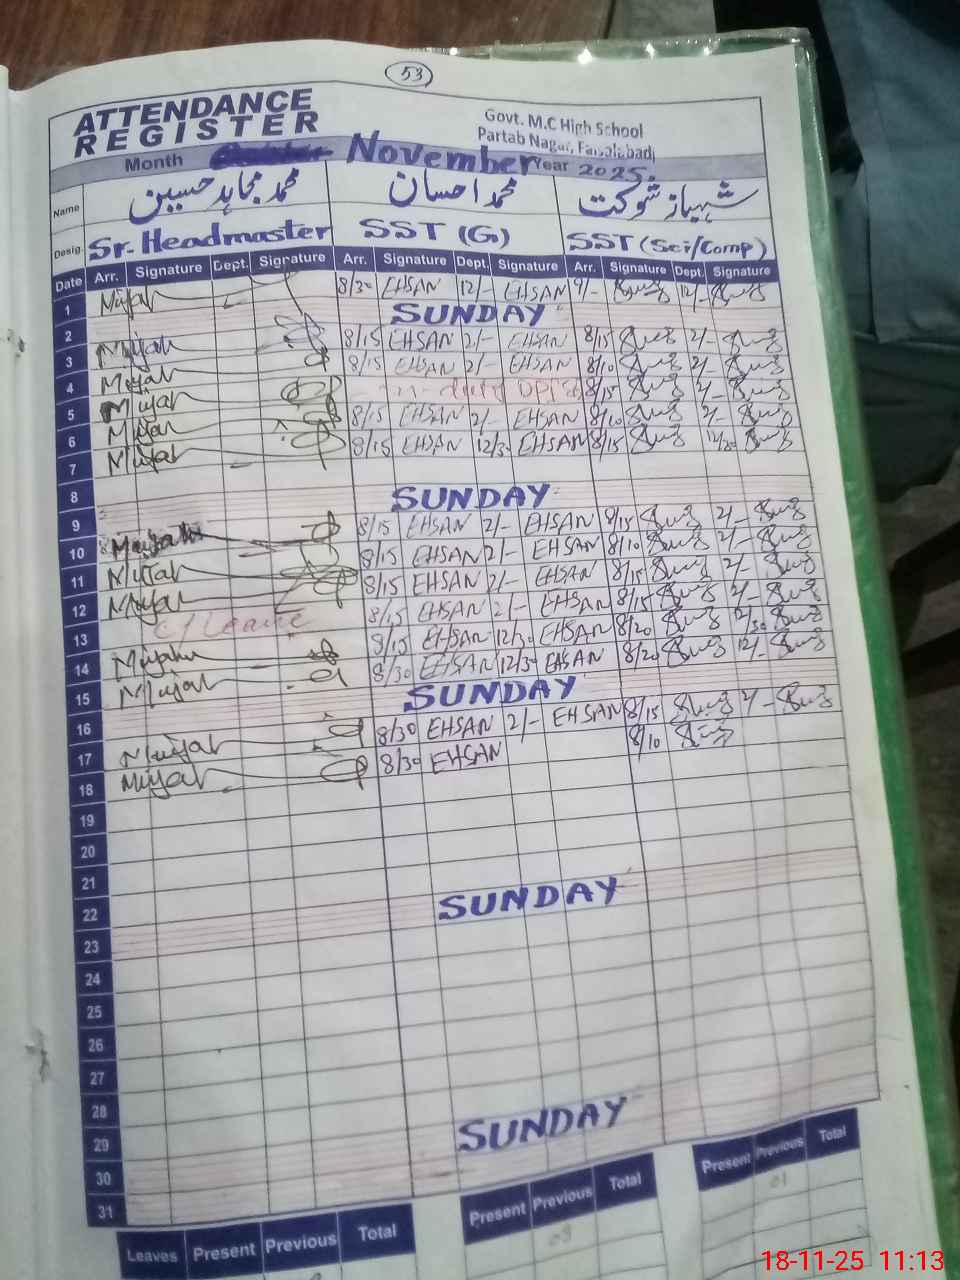 53
ATTENDANCE
REGISTER
Govt. M.C High School
Partab Nagar, Faisalabad
Month November Year 2025.
Name محمد مجاہد حسین محمد احسان شہباز شوکت
Desig. Sr. Headmaster SST (G) SST (Sci/Comp)
Date Arr. Signature Dept. Signature Arr. Signature Dept. Signature Arr. Signature Dept. Signature
1 8/30 EHSAN 12/- EHSAN 9/- 12/-
SUNDAY
2 8/15 EHSAN 2/- EHSAN 8/15 2/-
3 8/15 EHSAN 2/- EHSAN 8/10 2/-
4 duty 8/15 2/-
5 8/15 EHSAN 2/- EHSAN 8/10 2/-
6 8/15 EHSAN 12/30 EHSAN 8/15 12/30
7
8 SUNDAY
9 8/15 EHSAN 2/- EHSAN 8/15 2/-
10 8/15 EHSAN 2/- EHSAN 8/10 2/-
11 8/15 EHSAN 2/- EHSAN 8/15 2/-
12 C/Leave 8/15 EHSAN 2/- EHSAN 8/15 2/-
13 8/15 EHSAN 12/30 EHSAN 8/20 12/30
14 8/30 EHSAN 12/30 EHSAN 8/20 12/-
15 SUNDAY
16 8/30 EHSAN 2/- EHSAN 8/15 2/-
17 8/30 EHSAN 8/10
18
19
20
21
22 SUNDAY
23
24
25
26
27
28
29 SUNDAY
30
31
Leaves Present Previous Total Present Previous Total Present Previous Total
01
18-11-25 11:13